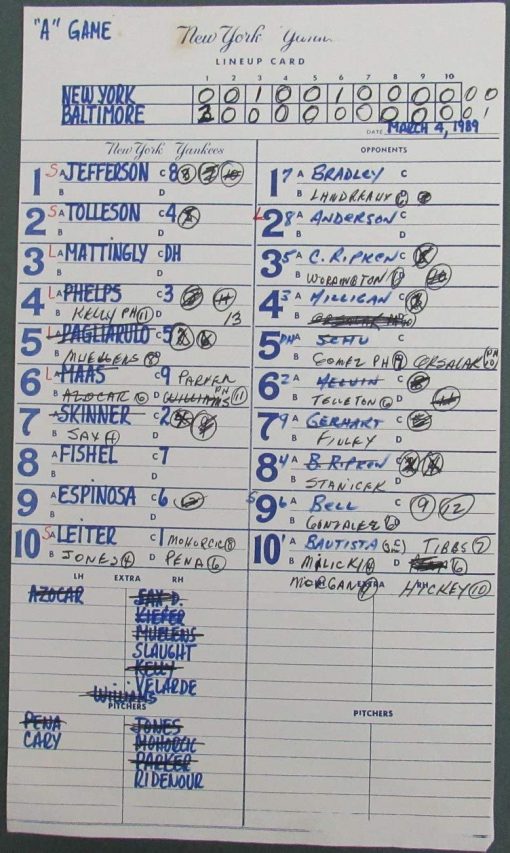 "A" GAME
New York
LINEUP CARD
1 2 3 4 5 6 7 8 9 10
NEW YORK 0 0 1 0 0 1 0 0 0 0 0 0
BALTIMORE 2 0 0 0 0 0 0 0 0 0 0 1
DATE MARCH 4, 1989
New York Yankees
OPPONENTS
1 S A JEFFERSON C 8
B D
2 S A TOLLESON C 4
B D
3 L A MATTINGLY C DH
B D
4 L A PHELPS C 3
B KELLY PH 11 D 13
5 L A PAGLIARULO C 5
B MUELLENS 8
6 L A MAAS C 9 PARKER
B AZOCAR 6 D WILLIAMS PH 11
7 A SKINNER C 2
B SAX 4 D
8 A FISHEL C 7
B D
9 A ESPINOSA C 6
B D
10 S A LEITER C 1 MOHORCIC 8
B JONES 4 D PENA 6
1 7 A BRADLEY C
B LANDREAUX
L 2 8 A ANDERSON C
B D
3 5 A C. RIPKEN C
B WORTHINGTON
4 3 A MILLIGAN C
B
5 DH A C
B GOMEZ PH 9
6 2 A MELVIN C
B TETTLETON 6 D
7 9 A GERHART C
B FINLEY D
8 4 A B. RIPKEN C
B STANICEK D
S 9 6 A BELL C 9 12
B GONZALEZ 6 D
10 1 A BAUTISTA TIBBS 7
B MALICKI 4 D 6
MORGAN HICKEY 10
LH EXTRA RH
EXTRA RH
AZOCAR
SAX D.
KIEFER
MUELENS
SLAUGHT
KELLY
VELARDE
WILLIAMS
PITCHERS
PITCHERS
PENA
CARY
JONES
MOHORCIC
PARKER
RIDENOUR